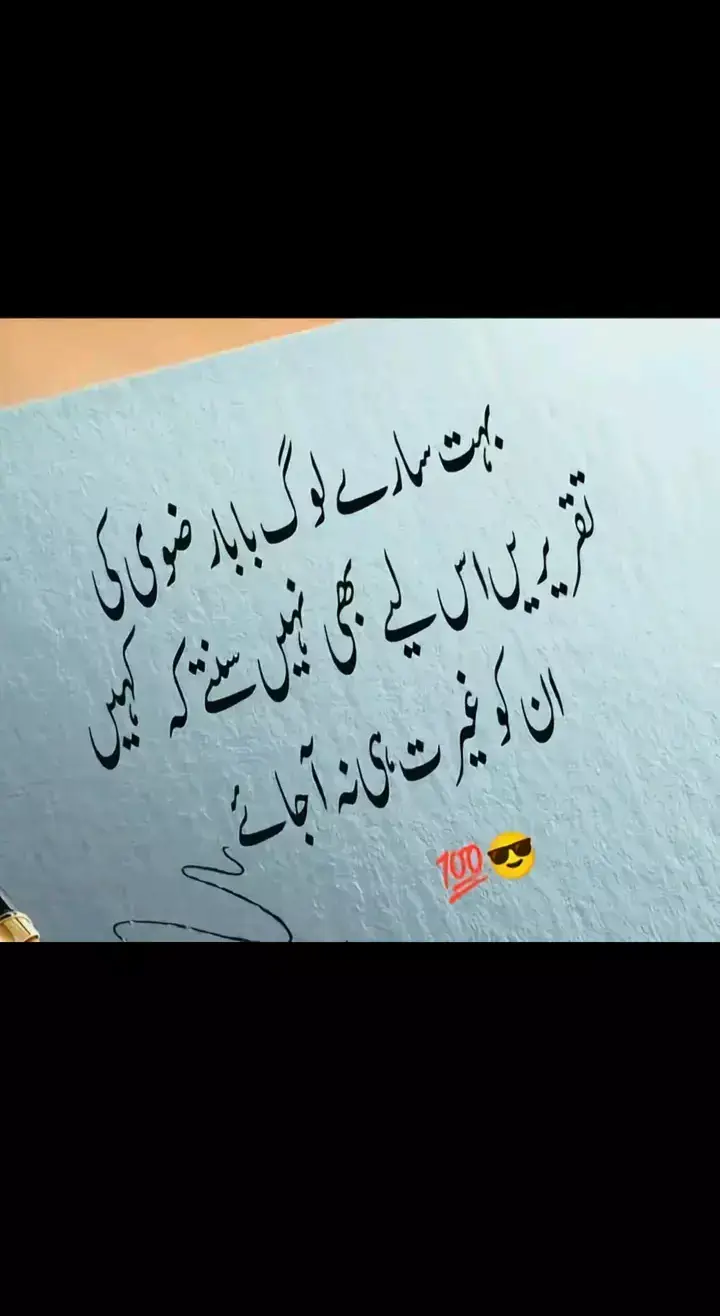 بہت سارے لوگ بابا رضوی کی
تقریریں اس لیے بھی نہیں سنتے کہ کہیں
ان کو غیرت ہی نہ آجائے
💯😎